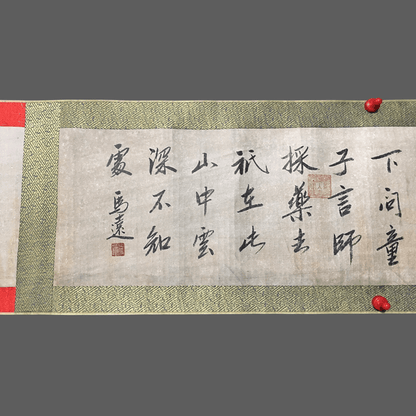 下问童
子言師
採藥去
祇在此
山中雲
深不知
處
馬遠